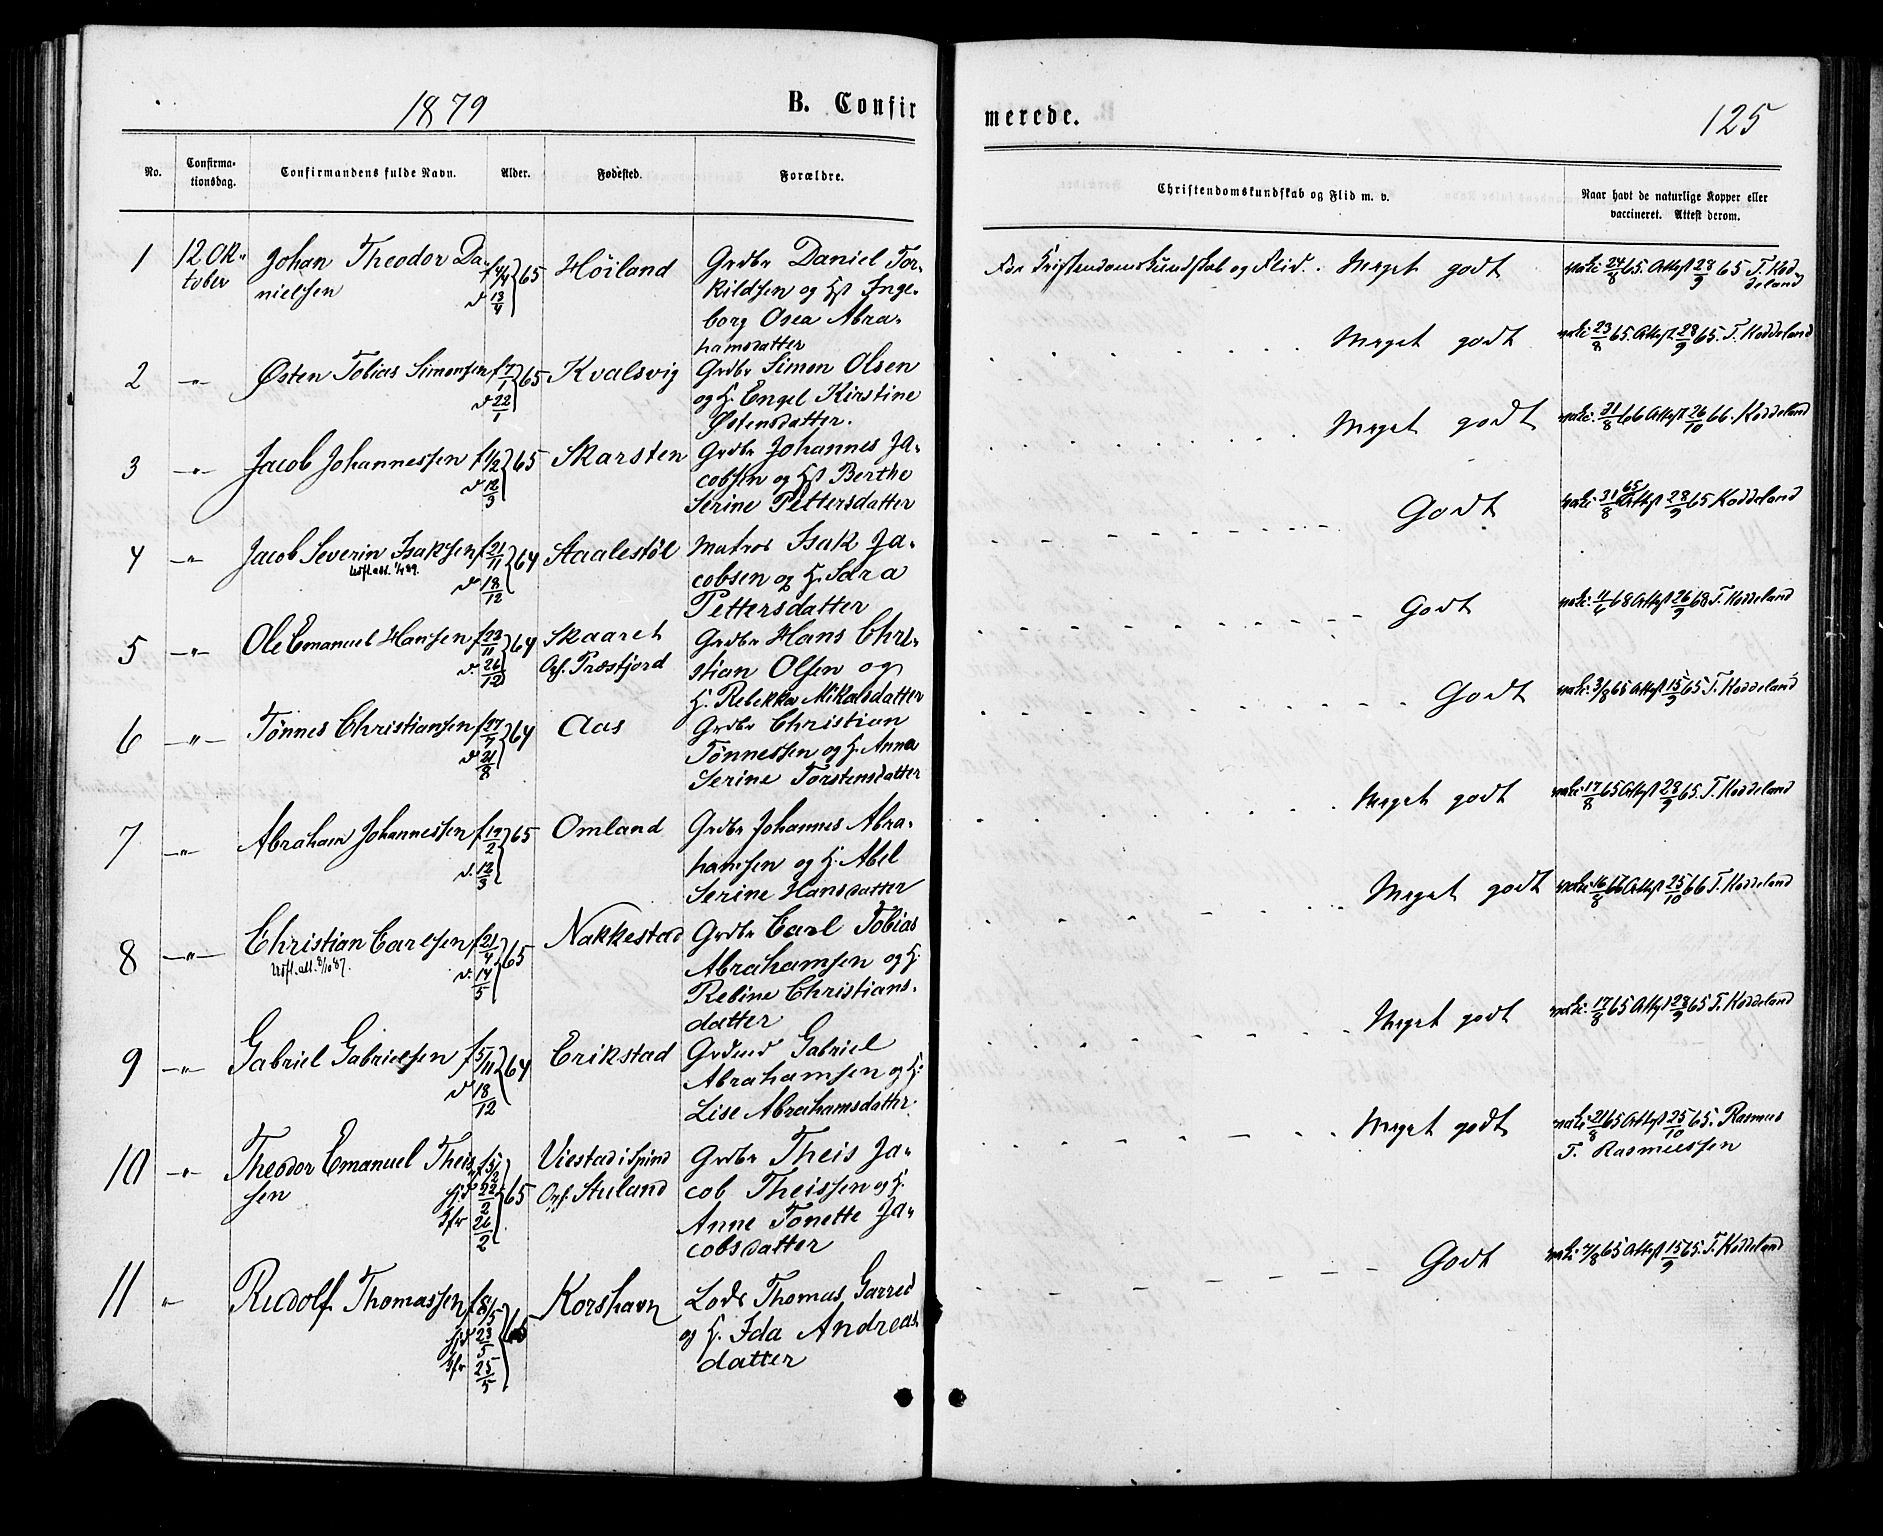 1879
B. Confirmerede.
125
No. Confirmationsdag. Confirmandens fulde Navn. Alder. Fødested. Forældre. Christendomskundskab og Flid m. v. Naar havt de naturlige Kopper eller vaccineret. Attest derom.
1 12. Ok- Johan Theodor Da- f 4/4 65 Höiland Grdbr Daniel Tor-
tober nielsen d 13/4 kildsen og Hst Inge-
borg Osea Abra-
hamsdatter
For Kristendomskundskab og Flid. Meget godt vakc 24/8 65. Attest 28/9 65 T. Kod-
deland
2 -"- Østen Tobias Simonsen f 7/1 65 Kvalsvig Grdbr Simon Olsen
d 22/1 og H. Engel Kirstine
Østensdatter.
Meget godt vakc 23/8 65. Attest 28/9 65. T. Koddeland
3 -"- Jacob Johannessen f 1/2 65 Skarsten Grdbr Johannes Ja-
d 12/3 cobsen og Hst Berthe
Serine Pettersdatter
Meget godt vakc. 31/8 66 Attest 26/10 66. Koddeland
4 -"- Jacob Severin Isaksen f 21/11 64 Staalestöl Matros Isak Ja-
d 18/12 cobsen og H. Sara
Pettersdatter
Godt vakc 31/8 65 Attest 28/9 65 Koddeland
5 -"- Ole Emanuel Hansen f 23/11 64 Skaaret Grdbr Hans Chri-
d. 26/12 Opf. Præstfjord stian Olsen og
H. Rebekka Mikalsdatter
Godt vakc. 4/6 68 Attest 26/9 68 T. Koddeland
6 -"- Tønnes Christiansen f 27/7 64 Aas Grdbr Christian
d 21/8 Tønnessen og H. Anna
Serine Torstensdatter
Godt vakc. 3/8 65 Attest 15/9 65 T. Koddeland
7 -"- Abraham Johannessen f 19/2 65 Omland Grdbr Johannes Abra-
d. 12/3 hamsen og H. Abel
Serine Hansdatter
Meget godt vakc 17/8 65 Attest 28/9 65. T. Koddeland
8 -"- Christian Carlsen f 21/4 65 Nakkestad Grdbr Carl Tobias
Udfl. att. 8/10 87. d. 14/5 Abrahamsen og H.
Rebine Christians-
datter
Meget godt vakc 16/8 66 Attest 25/10 66 T. Koddeland
9 -"- Gabriel Gabrielsen f 5/11 64 Erikstad Grdmd Gabriel
d 18/12 Abrahamsen og H.
Lise Abrahamsdatter.
Meget godt vakc. 17/8 65 Attest 28/9 65 T. Koddeland
10 -"- Theodor Emanuel Theis- 65 Viestad i Spind Grdbr Theis Ja-
sen hjd 22/2 Opf. Stuland cob Theissen og H.
Ifr 26/2 Anne Tonette Ja-
cobsdatter
Meget godt vakc 21/8 65 Attest 25/10 65. Rasmus
T. Rasmussen
11 " Rudolf Thomassen f 8/5 65 Korshavn Lods Thomas Garred
hjd 23/5 og H. Ida Andreas-
Ifr 25/5 datter
Godt Attest 15/9 65. T. Koddeland